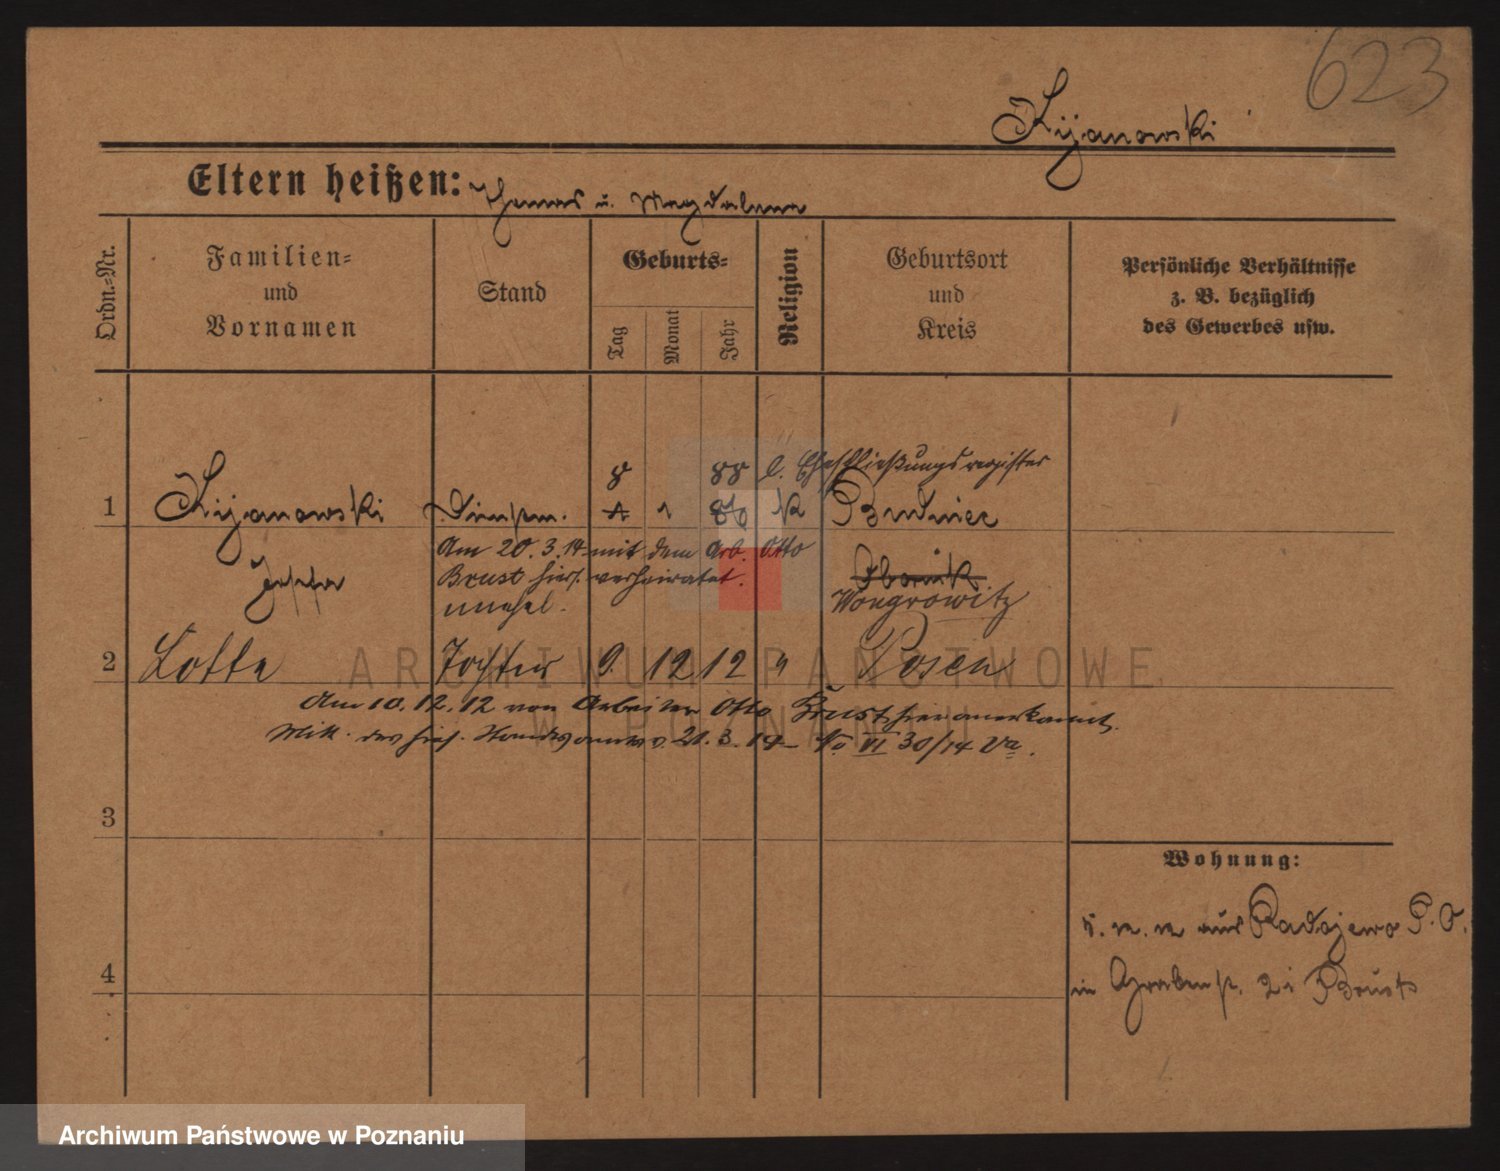 623
Kijanowski
Eltern heißen: Thomas u. Magdalena
Ordn.-Nr.
Familien-
und
Vornamen
Stand
Geburts-
Tag
Monat
Jahr
Religion
Geburtsort
und
Kreis
Persönliche Verhältnisse
z. B. bezüglich
des Gewerbes usw.
8 88 l. Eheschließungsregister
1 Kijanowski Dienstm. 1 86 K
Am 20.3.14 mit dem Arb. Otto
Josefa Brust hier verheiratet. Obornik
unehel. Wongrowitz
2 Lotte Tochter 9. 12 12 " Posen
Am 10.12.12 von Arbeiter Otto Brust hier anerkannt.
Mitt. des hies. Standesamtes v. 21.3.14 No VI 30/14
3
4
Wohnung:
aus Radojewo P. O.
in Grabenstr. 2 Brust
ARCHIWUM PAŃSTWOWE
W POZNANIU
Archiwum Państwowe w Poznaniu